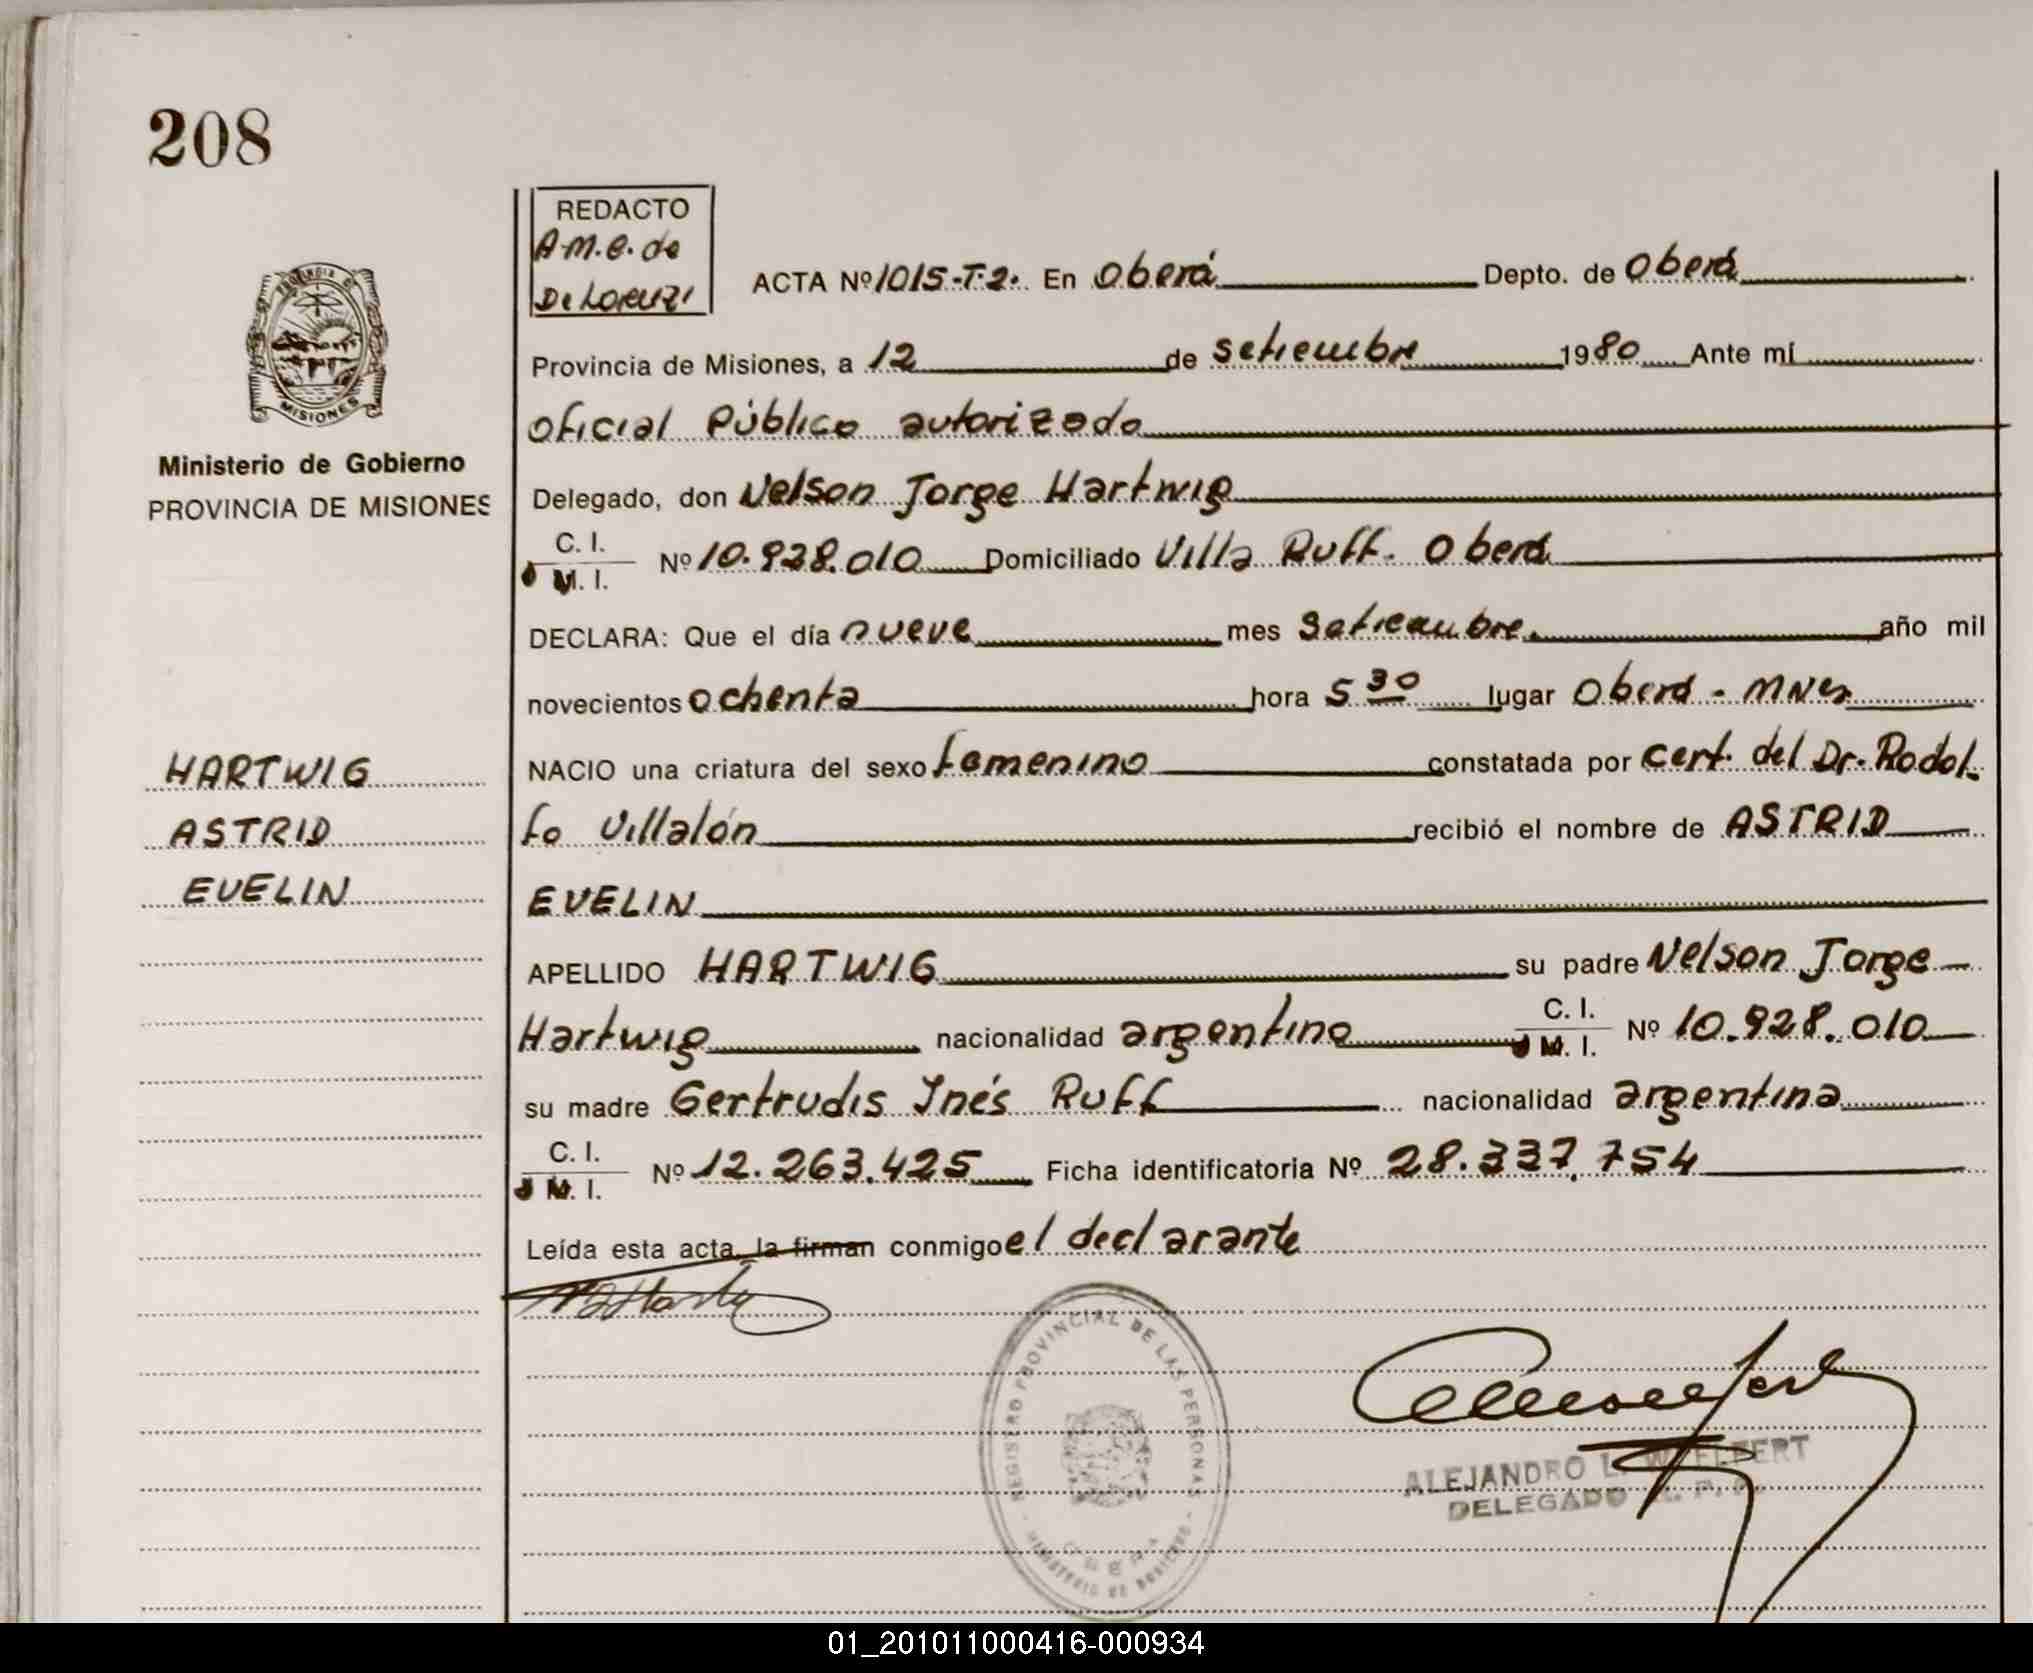 208
REDACTO
A.M.E. de
De Lorenzi
ACTA Nº 1015-T-2. En Oberá Depto. de Oberá
Provincia de Misiones, a 12 de setiembre 1980 Ante mí
Oficial Público autorizado
Ministerio de Gobierno
PROVINCIA DE MISIONES
Delegado, don Nelson Jorge Hartwig
C. I.
M. I. Nº 10.928.010 Domiciliado Villa Ruff. Oberá
DECLARA: Que el día nueve mes setiembre año mil
novecientos ochenta hora 5 30 lugar Oberá - Mnes
HARTWIG
NACIO una criatura del sexo femenino constatada por cert. del Dr. Rodol-
ASTRID
fo Villalón recibió el nombre de ASTRID
EVELIN
EVELIN
APELLIDO HARTWIG su padre Nelson Jorge
Hartwig nacionalidad argentina C. I.
M. I. Nº 10.928.010
su madre Gertrudis Inés Ruff nacionalidad argentina
C. I.
M. I. Nº 12.263.425 Ficha identificatoria Nº 28.337.754
Leída esta acta, la firman conmigo el declarante
REGISTRO PROVINCIAL DE LAS PERSONAS
MINISTERIO DE GOBIERNO
OBERA
ALEJANDRO L. WELFERT
DELEGADO
MISIONES
01_201011000416-000934